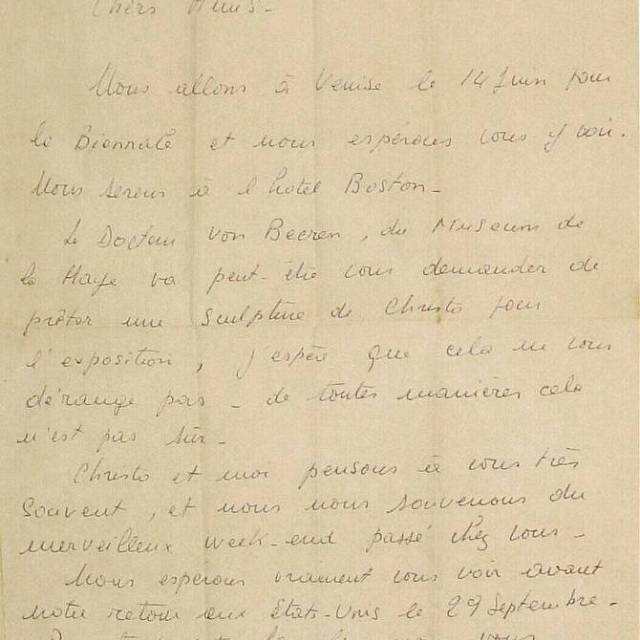 Chers Amis -
Nous allons à Venise le 14 Juin pour
la Biennale et nous espérons vous y voir.
Nous serons à l'hotel Boston -
Le Docteur von Beeren, du Museum de
la Haye va peut-être vous demander de
prêter une sculpture de Christo pour
l'exposition, j'espère que cela ne vous
dérange pas - de toutes manières cela
n'est pas sûr -
Christo et moi pensons à vous très
souvent, et nous nous souvenons du
merveilleux week-end passé chez vous -
Nous esperons vraiment vous voir avant
notre retour aux Etats-Unis le 29 Septembre -